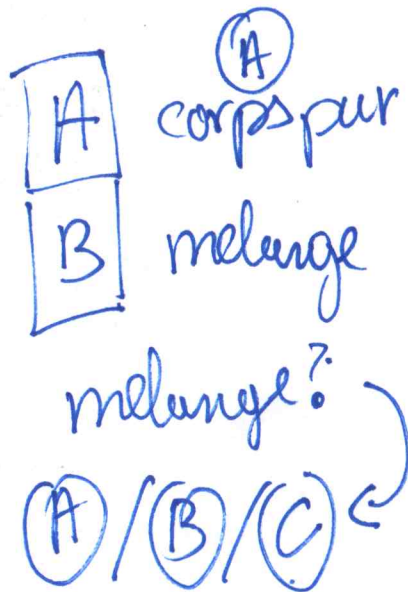 A
A corps pur
B melange
melange?
A / B / C